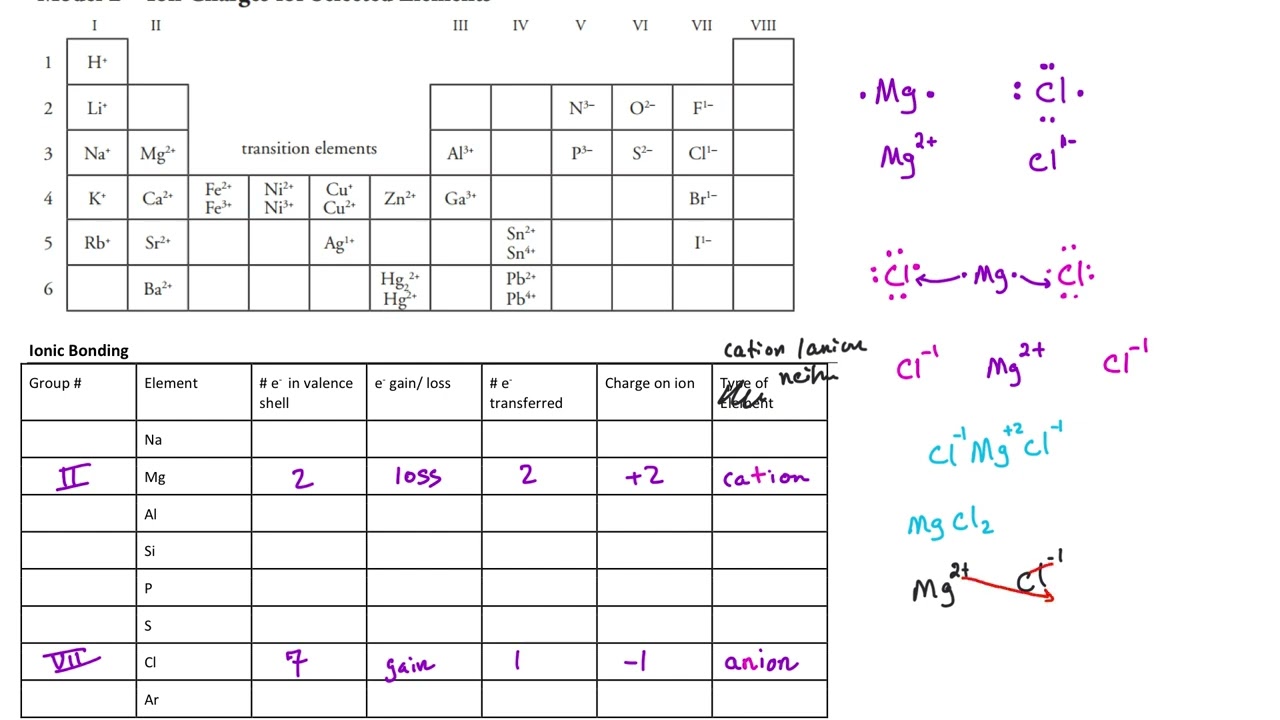 Model 2 – Ion Charges for Selected Elements
I II III IV V VI VII VIII
1 H⁺
2 Li⁺ N³⁻ O²⁻ F¹⁻
3 Na⁺ Mg²⁺ transition elements Al³⁺ P³⁻ S²⁻ Cl¹⁻
4 K⁺ Ca²⁺ Fe²⁺ Fe³⁺ Ni²⁺ Ni³⁺ Cu⁺ Cu²⁺ Zn²⁺ Ga³⁺ Br¹⁻
5 Rb⁺ Sr²⁺ Ag¹⁺ Sn²⁺ Sn⁴⁺ I¹⁻
6 Ba²⁺ Hg₂²⁺ Hg²⁺ Pb²⁺ Pb⁴⁺
Ionic Bonding
cation /anion
neither
Group # Element # e⁻ in valence shell e⁻ gain/ loss # e⁻ transferred Charge on ion Type of Element
Na
II Mg 2 loss 2 +2 cation
Al
Si
P
S
VII Cl 7 gain 1 -1 anion
Ar
Mg Cl
Mg²⁺ Cl¹⁻
Cl Mg Cl
Cl⁻¹ Mg²⁺ Cl⁻¹
Cl⁻¹ Mg⁺² Cl⁻¹
MgCl₂
Mg²⁺ Cl⁻¹